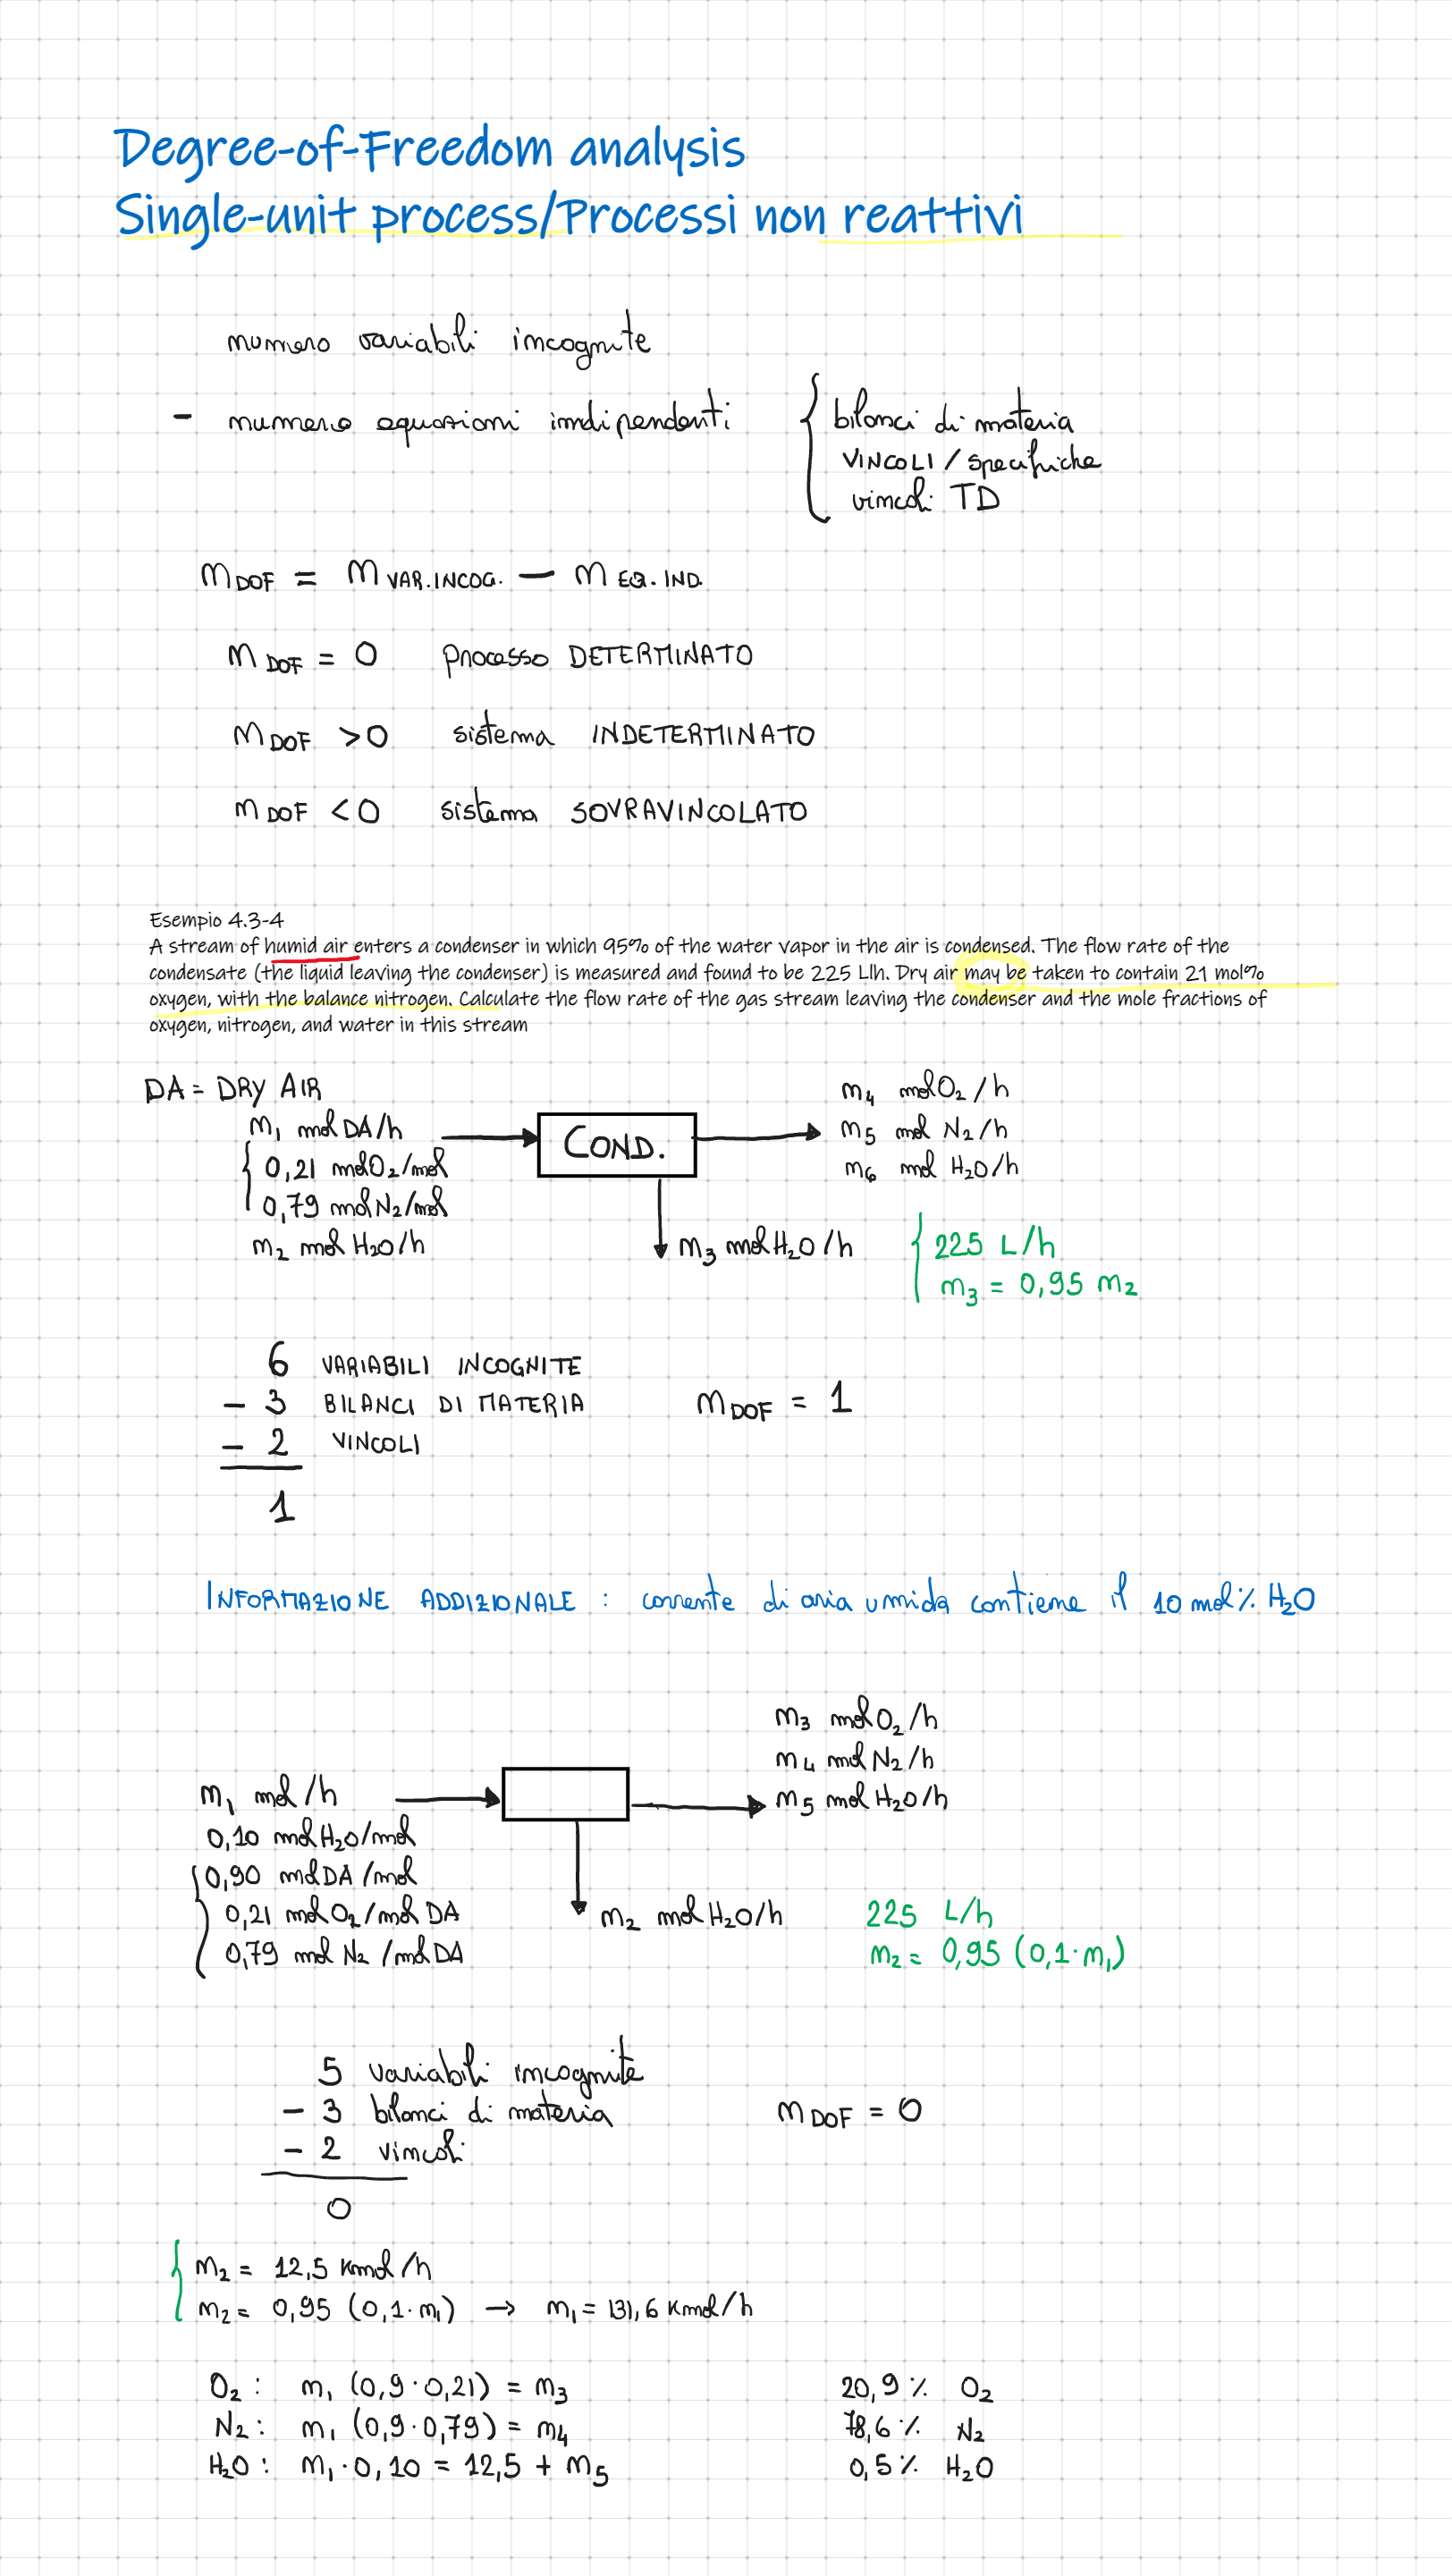 Degree-of-Freedom analysis
Single-unit process/Processi non reattivi
numero variabili incognite
- numero equazioni indipendenti { bilanci di materia
VINCOLI / specifiche
vincoli TD
n DOF = n VAR.INCOG. - n EQ.IND.
n DOF = 0 processo DETERMINATO
n DOF >0 sistema INDETERMINATO
n DOF <0 sistema SOVRAVINCOLATO
Esempio 4.3-4
A stream of humid air enters a condenser in which 95% of the water vapor in the air is condensed. The flow rate of the
condensate (the liquid leaving the condenser) is measured and found to be 225 Llh. Dry air may be taken to contain 21 mol%
oxygen, with the balance nitrogen. Calculate the flow rate of the gas stream leaving the condenser and the mole fractions of
oxygen, nitrogen, and water in this stream
DA = DRY AIR
n1 mol DA/h
0,21 mol O2/mol
0,79 mol N2/mol
n2 mol H2O/h
COND.
n4 mol O2 /h
n5 mol N2 /h
n6 mol H2O /h
n3 mol H2O /h
225 L/h
n3 = 0,95 n2
6 VARIABILI INCOGNITE
- 3 BILANCI DI MATERIA
- 2 VINCOLI
1
n DOF = 1
INFORMAZIONE ADDIZIONALE : corrente di aria umida contiene il 10 mol% H2O
n1 mol /h
0,10 mol H2O/mol
0,90 mol DA /mol
0,21 mol O2/mol DA
0,79 mol N2 /mol DA
n3 mol O2 /h
n4 mol N2 /h
n5 mol H2O/h
n2 mol H2O/h
225 L/h
n2 = 0,95 (0,1·n1)
5 variabili incognite
- 3 bilanci di materia
- 2 vincoli
0
n DOF = 0
n2 = 12,5 Kmol /h
n2 = 0,95 (0,1·n1) → n1 = 131,6 Kmol/h
O2 : n1 (0,9·0,21) = n3 20,9 % O2
N2 : n1 (0,9·0,79) = n4 78,6 % N2
H2O : n1·0,10 = 12,5 + n5 0,5 % H2O